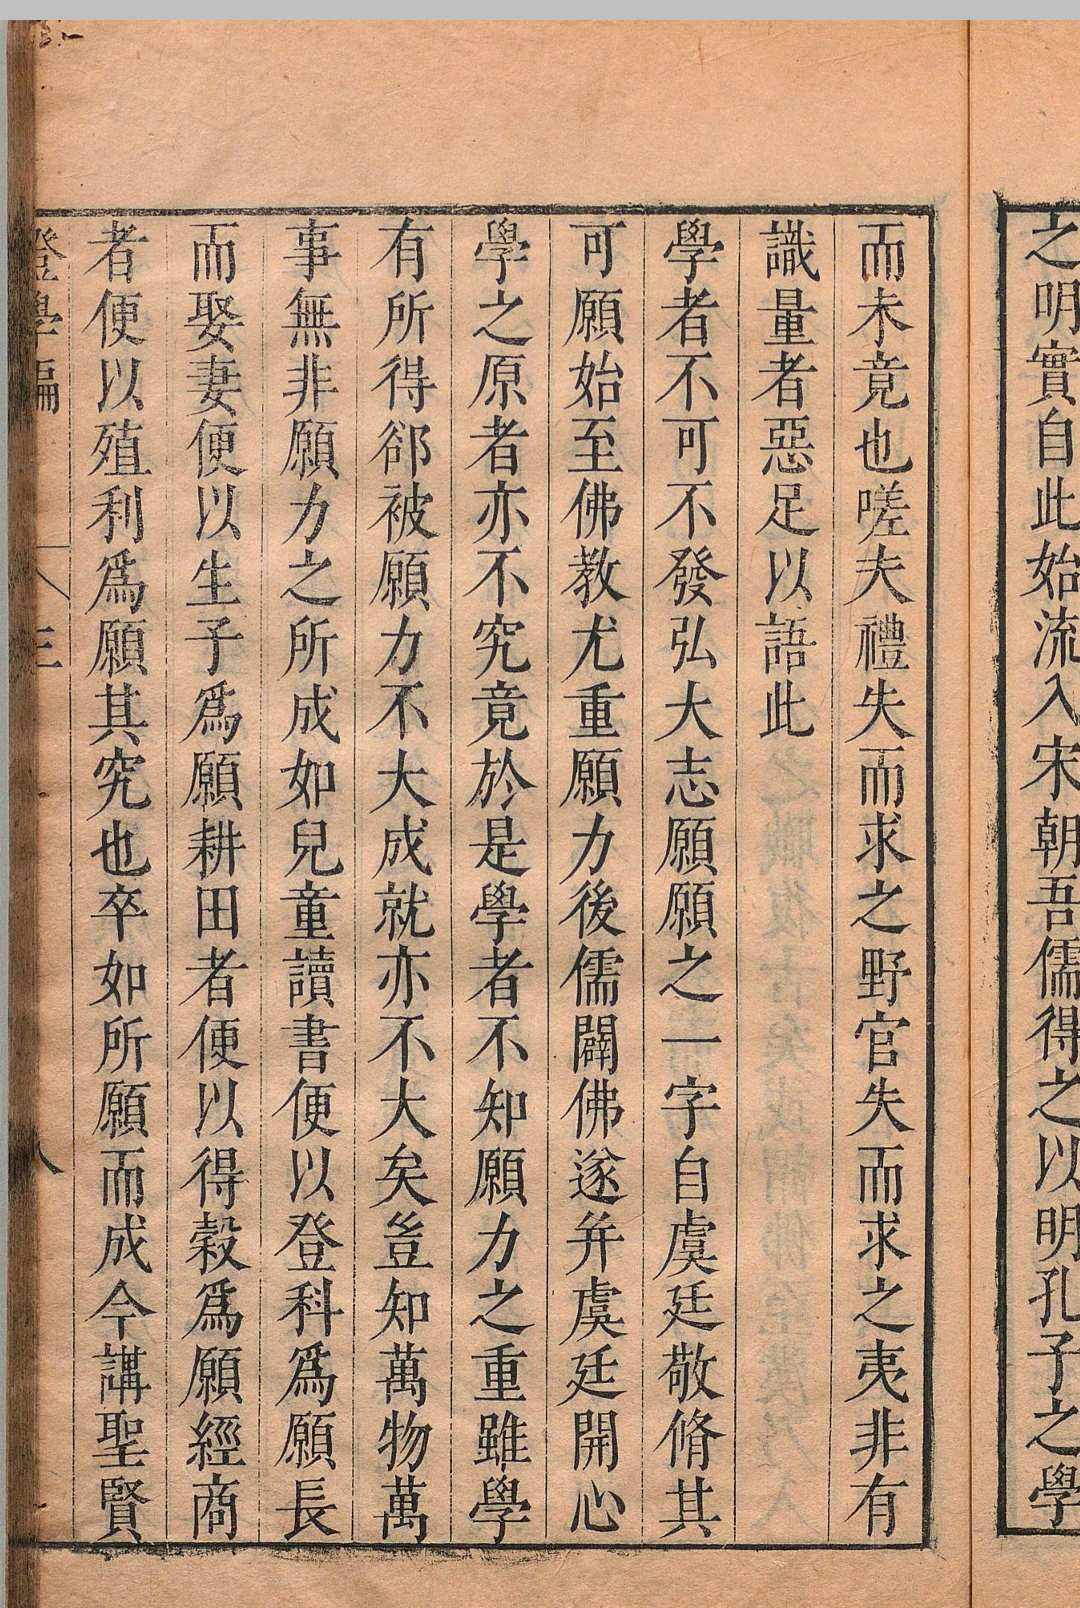 之明實自此始流入宋朝吾儒得之以明孔子之學
而未竟也嗟夫禮失而求之野官失而求之夷非有
識量者惡足以語此
學者不可不發弘大志願願之一字自虞廷敬脩其
可願始至佛教尤重願力後儒闢佛遂并虞廷開心
學之原者亦不究竟於是學者不知願力之重雖學
有所得郤被願力不大成就亦不大矣豈知萬物萬
事無非願力之所成如兒童讀書便以登科爲願長
而娶妻便以生子爲願耕田者便以得穀爲願經商
者便以殖利爲願其究也卒如所願而成今講聖賢
證學編 三 八